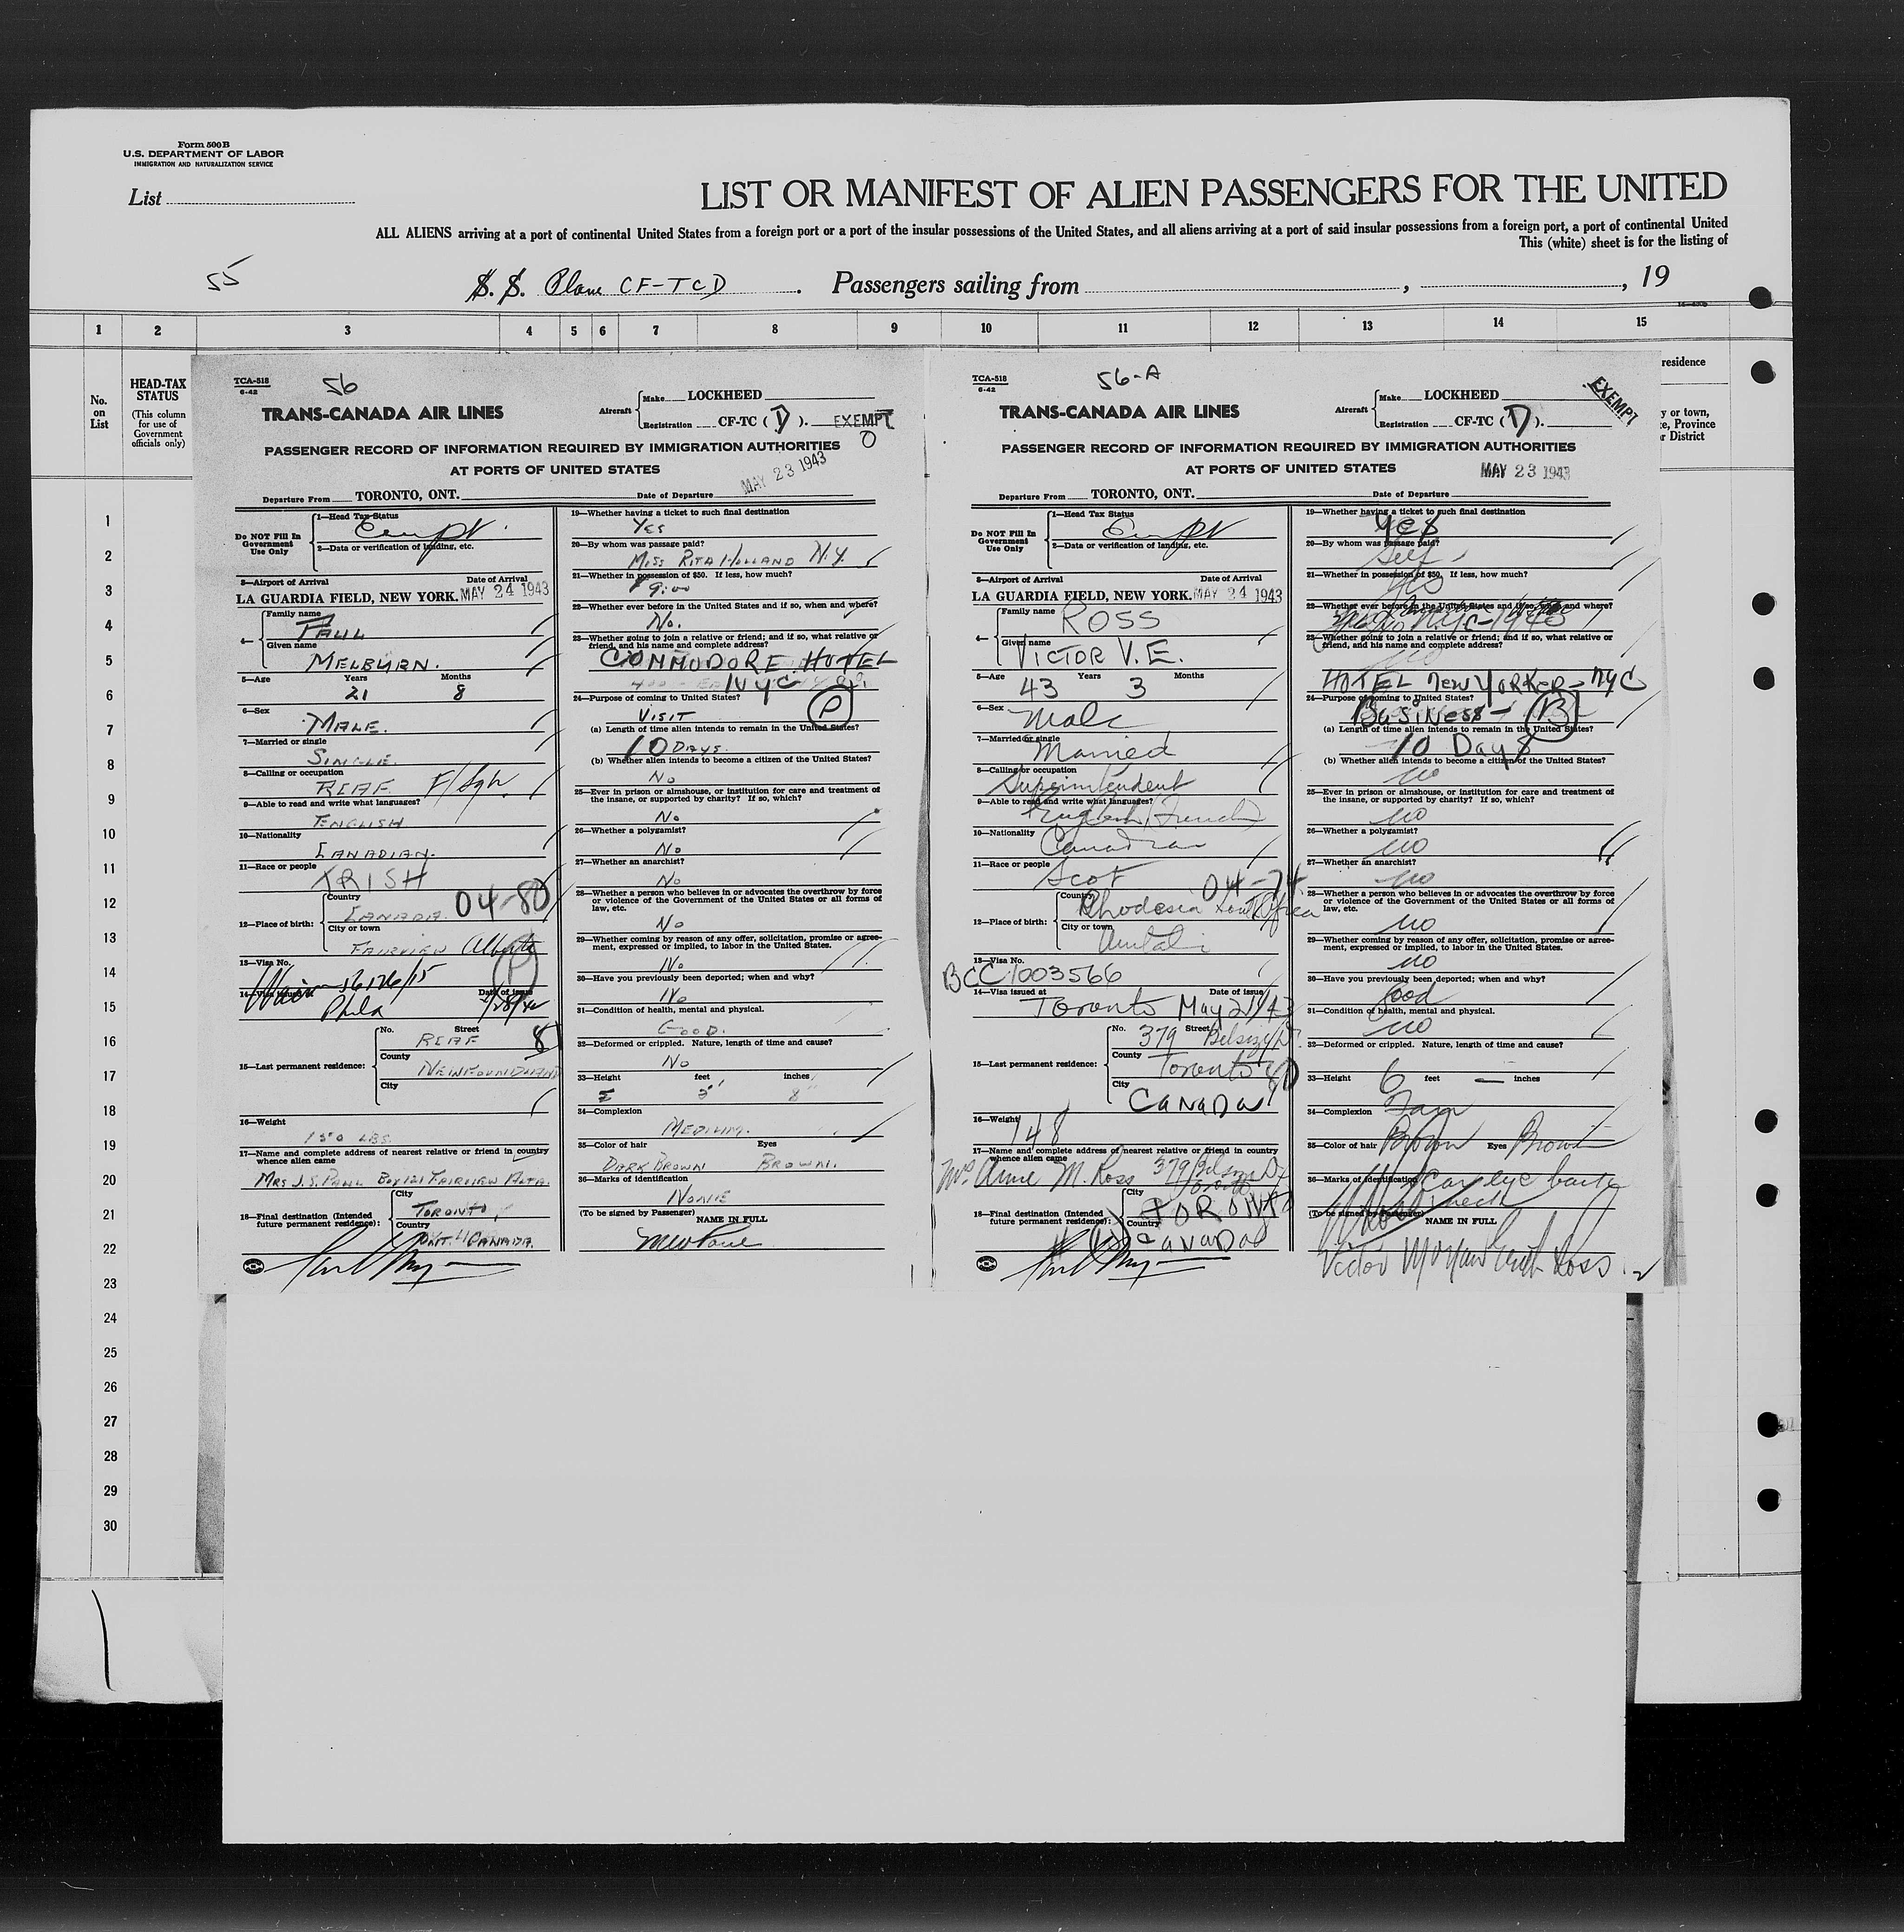 Form 500 B
U.S. DEPARTMENT OF LABOR
IMMIGRATION AND NATURALIZATION SERVICE
List
LIST OR MANIFEST OF ALIEN PASSENGERS FOR THE UNITED
ALL ALIENS arriving at a port of continental United States from a foreign port or a port of the insular possessions of the United States, and all aliens arriving at a port of said insular possessions from a foreign port, a port of continental United
This (white) sheet is for the listing of
55
S. S. Plane CF-TCD . Passengers sailing from , , 19
1 2 3 4 5 6 7 8 9 10 11 12 13 14 15
No. on List
HEAD-TAX STATUS
(This column for use of Government officials only)
residence
y or town,
e, Province
r District
1
2
3
4
5
6
7
8
9
10
11
12
13
14
15
16
17
18
19
20
21
22
23
24
25
26
27
28
29
30
TCA-518
6-42
56
TRANS-CANADA AIR LINES
Aircraft
Make LOCKHEED
Registration CF-TC (D). EXEMPT
PASSENGER RECORD OF INFORMATION REQUIRED BY IMMIGRATION AUTHORITIES
AT PORTS OF UNITED STATES
MAY 23 1943
Departure From TORONTO, ONT. Date of Departure
Do NOT Fill In Government Use Only
1—Head Tax Status
2—Data or verification of landing, etc.
3—Airport of Arrival Date of Arrival
LA GUARDIA FIELD, NEW YORK. MAY 24 1943
4— Family name
PAUL
Given name
MELBURN.
5—Age Years Months
21 8
6—Sex
MALE.
7—Married or single
SINGLE.
8—Calling or occupation
RCAF F/Sgt.
9—Able to read and write what languages?
ENGLISH
10—Nationality
CANADIAN.
11—Race or people
IRISH
12—Place of birth:
Country
CANADA. 04-80
City or town
FAIRVIEW Alberta
13—Visa No.
14—Visa issued at Date of issue
Phila
15—Last permanent residence:
No. Street
RCAF
County
NEWFOUNDLAND
City
16—Weight
150 LBS.
17—Name and complete address of nearest relative or friend in country whence alien came
MRS J.S. PAUL BOX 121 FAIRVIEW ALTA.
18—Final destination (Intended future permanent residence):
City
TORONTO,
Country
ONT. CANADA.
19—Whether having a ticket to such final destination
YES
20—By whom was passage paid?
MISS RITA HOLLAND N.Y.
21—Whether in possession of $50. If less, how much?
22—Whether ever before in the United States and if so, when and where?
NO.
23—Whether going to join a relative or friend; and if so, what relative or friend, and his name and complete address?
COMMODORE HOTEL
NYC
24—Purpose of coming to United States?
VISIT P
(a) Length of time alien intends to remain in the United States?
10 DAYS.
(b) Whether alien intends to become a citizen of the United States?
NO
25—Ever in prison or almshouse, or institution for care and treatment of the insane, or supported by charity? If so, which?
NO
26—Whether a polygamist?
NO
27—Whether an anarchist?
NO
28—Whether a person who believes in or advocates the overthrow by force or violence of the Government of the United States or all forms of law, etc.
NO
29—Whether coming by reason of any offer, solicitation, promise or agreement, expressed or implied, to labor in the United States.
NO
30—Have you previously been deported; when and why?
NO
31—Condition of health, mental and physical.
GOOD.
32—Deformed or crippled. Nature, length of time and cause?
NO
33—Height feet inches
34—Complexion
MEDIUM.
35—Color of hair Eyes
DARK BROWN BROWN.
36—Marks of identification
NONE
(To be signed by Passenger) NAME IN FULL
TCA-518
6-42
56-A
TRANS-CANADA AIR LINES
Aircraft
Make LOCKHEED
Registration CF-TC (D).
EXEMPT
PASSENGER RECORD OF INFORMATION REQUIRED BY IMMIGRATION AUTHORITIES
AT PORTS OF UNITED STATES
MAY 23 1943
Departure From TORONTO, ONT. Date of Departure
Do NOT Fill In Government Use Only
1—Head Tax Status
2—Data or verification of landing, etc.
3—Airport of Arrival Date of Arrival
LA GUARDIA FIELD, NEW YORK. MAY 24 1943
4— Family name
ROSS
Given name
VICTOR V.E.
5—Age Years Months
43 3
6—Sex
Male
7—Married or single
Married
8—Calling or occupation
Superintendent
9—Able to read and write what languages?
English, French
10—Nationality
Canadian
11—Race or people
Scot
12—Place of birth:
Country
04-74
Rhodesia South Africa
City or town
Umtali
13—Visa No.
BCC 1003566
14—Visa issued at Date of issue
Toronto May 21/43
15—Last permanent residence:
No. Street
379 Belsize Dr.
County
Toronto
City
CANADA
16—Weight
148
17—Name and complete address of nearest relative or friend in country whence alien came
Mrs Anne M. Ross 379 Belsize Dr Toronto
18—Final destination (Intended future permanent residence):
City
TORONTO
Country
CANADA
19—Whether having a ticket to such final destination
Yes
20—By whom was passage paid?
Self
21—Whether in possession of $50. If less, how much?
Yes
22—Whether ever before in the United States and if so, when and where?
NYC-1940
23—Whether going to join a relative or friend; and if so, what relative or friend, and his name and complete address?
no
HOTEL NEW YORKER - NYC
24—Purpose of coming to United States?
Business - B
(a) Length of time alien intends to remain in the United States?
10 Days
(b) Whether alien intends to become a citizen of the United States?
no
25—Ever in prison or almshouse, or institution for care and treatment of the insane, or supported by charity? If so, which?
no
26—Whether a polygamist?
no
27—Whether an anarchist?
no
28—Whether a person who believes in or advocates the overthrow by force or violence of the Government of the United States or all forms of law, etc.
no
29—Whether coming by reason of any offer, solicitation, promise or agreement, expressed or implied, to labor in the United States.
no
30—Have you previously been deported; when and why?
Good
31—Condition of health, mental and physical.
no
32—Deformed or crippled. Nature, length of time and cause?
33—Height 6 feet — inches
34—Complexion
Fair
35—Color of hair Brown Eyes Brown
36—Marks of identification
neck
(To be signed by Passenger) NAME IN FULL
Victor Ross